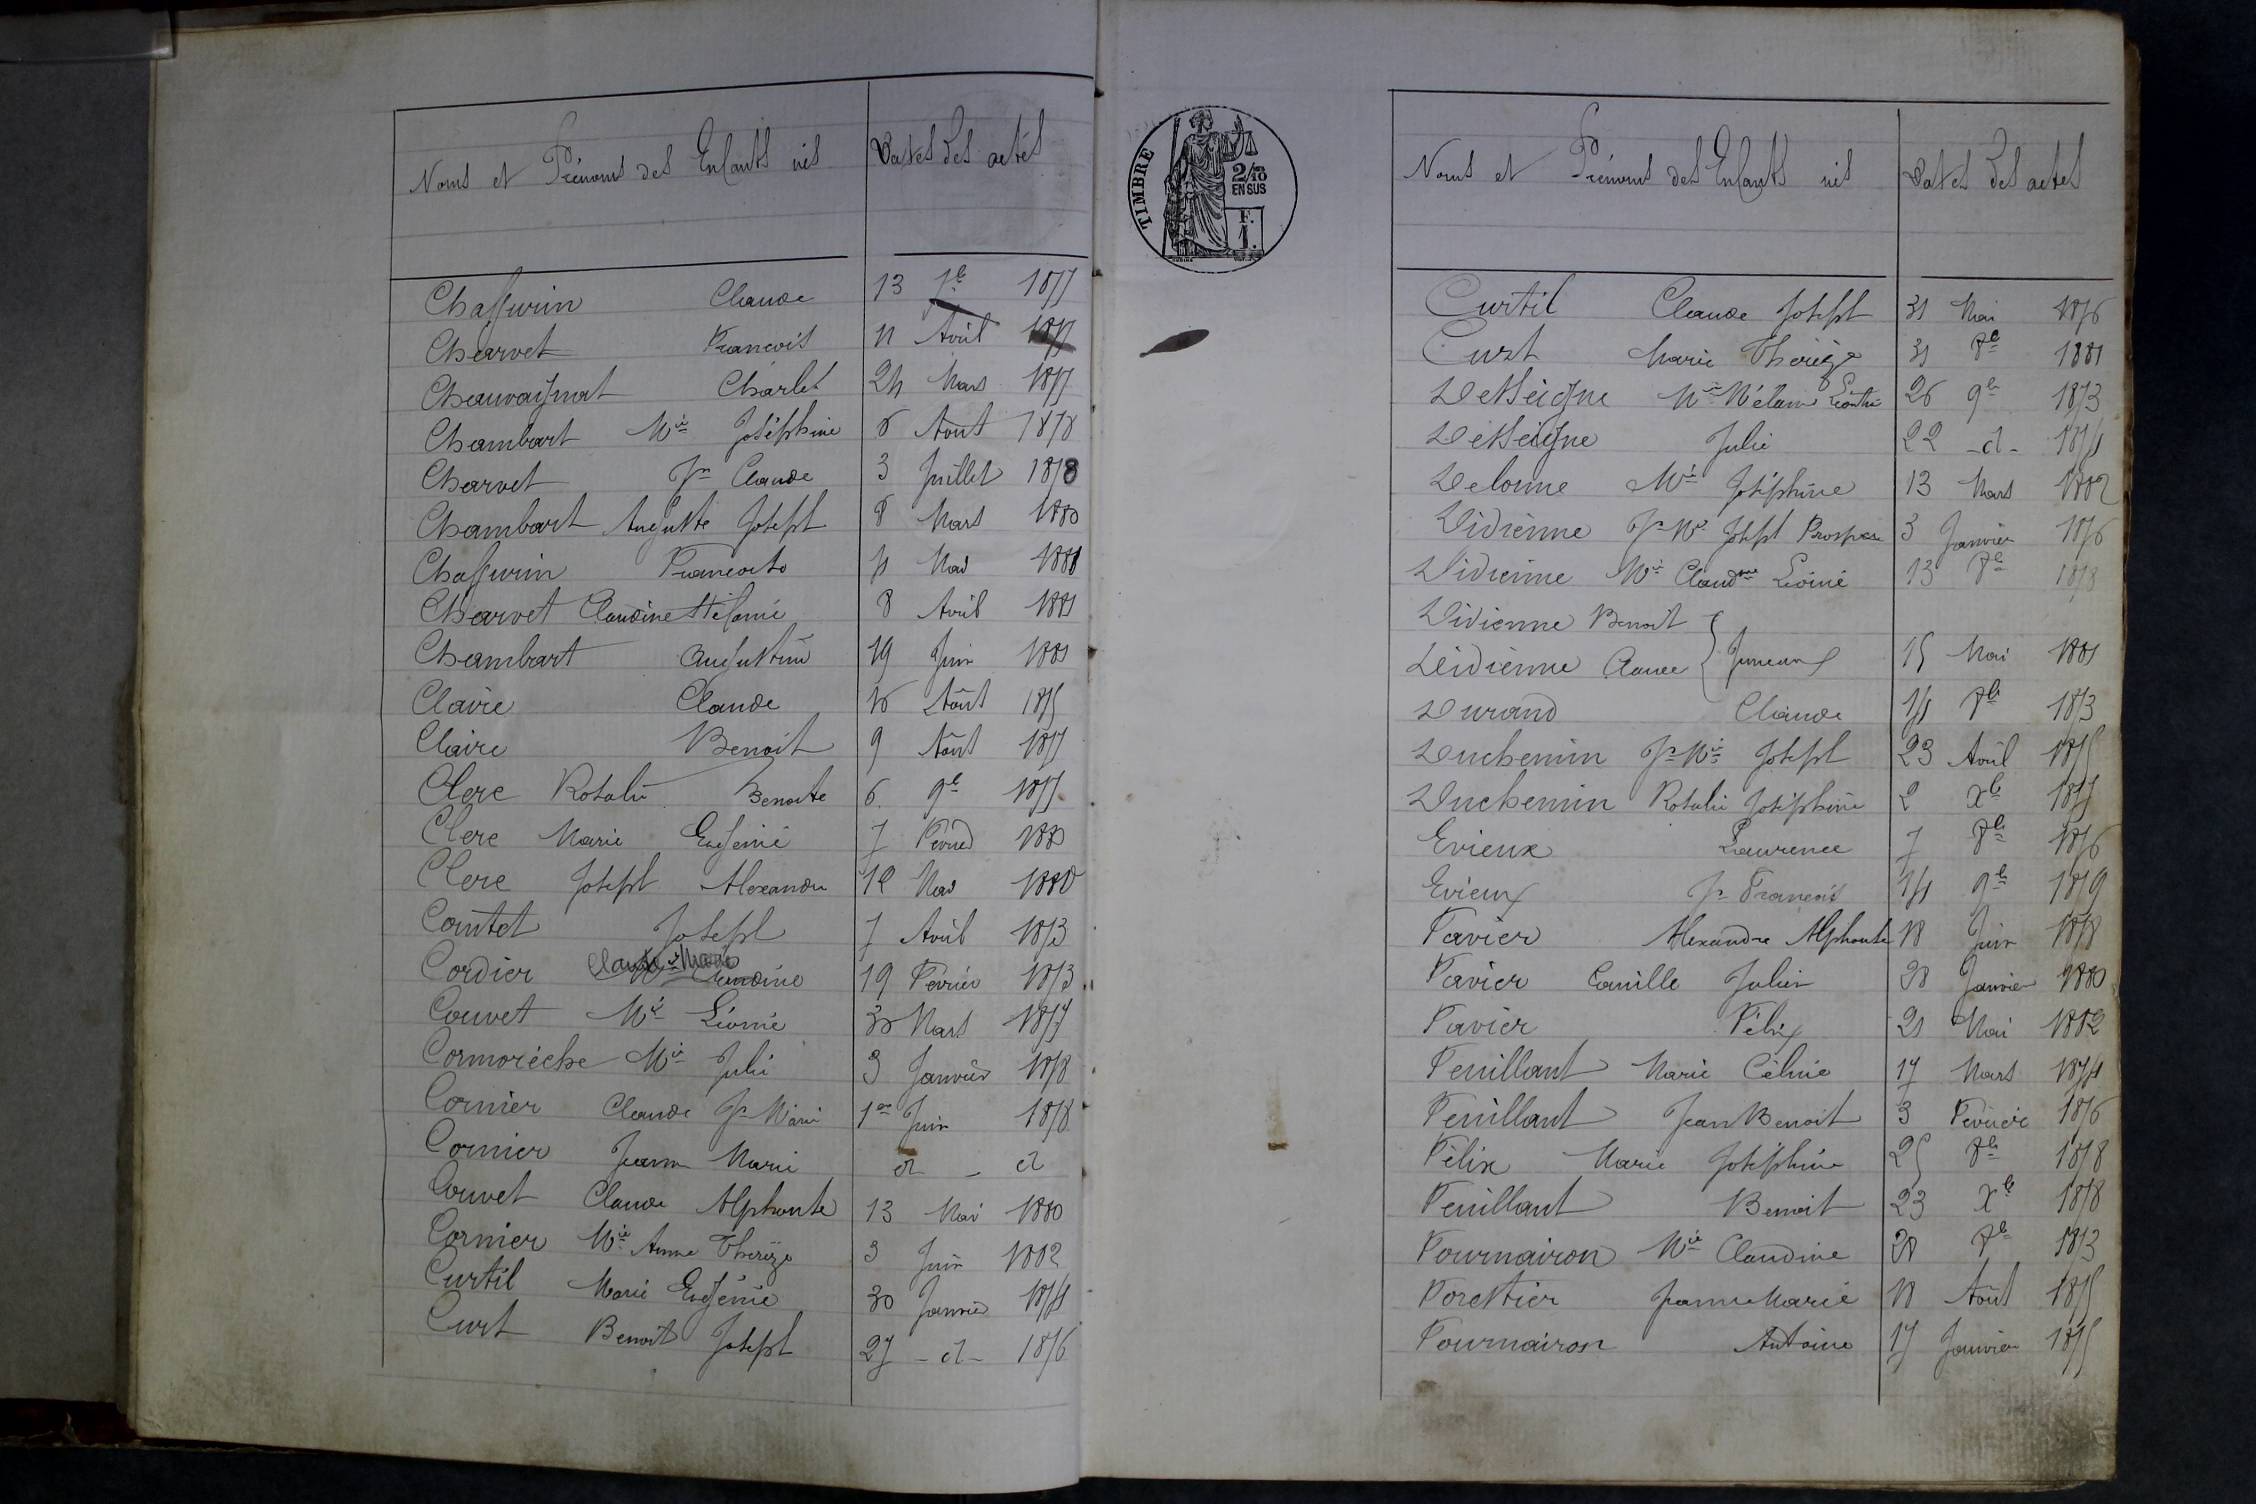 Noms et Prénoms des Enfants nés Dates des actes
Chaffurin Claude 13 7bre 1877
Charvet Francois 11 Avril 1877
Chauvagnat Charles 24 Mars 1877
Chambart Mie Joséphine 6 Août 1878
Charvet Jn Claude 3 Juillet 1878
Chambart Auguste Joseph 8 Mars 1880
Chaffurin Francois 4 Mai 1881
Charvet Claudine Stéfanie 8 Avril 1881
Chambart Augustine 19 Juin 1881
Claire Claude 16 Août 1875
Claire Benoit 9 Août 1877
Clere Rosalie Benoite 6 9bre 1877
Clere Marie Eugénie 7 Février 1880
Clere Joseph Alexandre 12 Mai 1880
Comtet Joseph 7 Avril 1873
Cordier Claude Marie 19 Février 1873
Couvet Mie Léonie 30 Mars 1877
Cormorèche Mie Julie 3 Janvier 1878
Cornier Claude Jn Marie 1er Juin 1878
Cornier Jeanne Marie d - d
Couvet Claude Alphonse 13 Mai 1880
Cornier Mie Anne Thérèze 3 Juin 1882
Curtil Marie Eugénie 30 Janvier 1874
Curt Benoit Joseph 27 - d - 1876
TIMBRE
2/10
EN SUS
F.
1.
Noms et Prénoms des Enfants nés Dates des actes
Curtil Claude Joseph 31 Mai 1876
Curt Marie Thérèze 31 8bre 1881
Desseigne Mie Mélanie Léontine 26 9bre 1873
Desseigne Julie 22 - d - 1874
Delorme Mie Joséphine 13 Mars 1882
Didienne Jn Mie Joseph Prosper 3 Janvier 1876
Didienne Mie Claudine Léonie 13 8bre 1878
Didienne Benoit
Didienne Claude } Jumeaux 15 Mai 1881
Durand Claude 14 7bre 1873
Duchemin Jn Mie Joseph 23 Avril 1875
Duchemin Rosalie Joséphine 2 Xbre 1877
Evieux Laurence 7 8bre 1876
Evieux Jn Francois 14 9bre 1879
Favier Alexandre Alphonse 18 Juin 1878
Favier Camille Julien 28 Janvier 1880
Favier Félix 21 Mai 1882
Feuillant Marie Céline 17 Mars 1874
Feuillant Jean Benoit 3 Février 1876
Félix Marie Joséphine 25 8bre 1878
Feuillant Benoit 23 Xbre 1878
Fournairon Mie Claudine 28 7bre 1873
Forestier Jeanne Marie 18 Août 1875
Fournairon Antoine 17 Janvier 1875